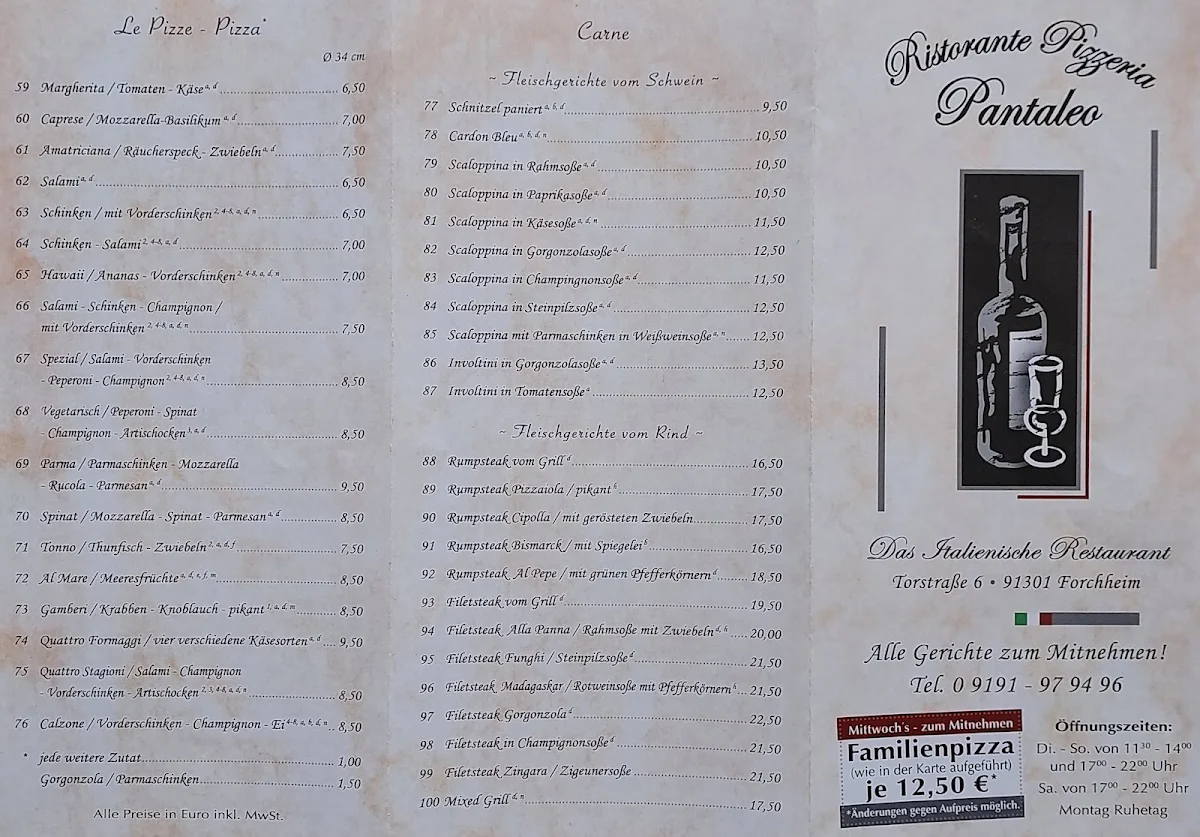 Le Pizze - Pizza*
Ø 34 cm
59 Margherita / Tomaten - Käse a, d 6,50
60 Caprese / Mozzarella-Basilikum a, d 7,00
61 Amatriciana / Räucherspeck - Zwiebeln a, d 7,50
62 Salami a, d 6,50
63 Schinken / mit Vorderschinken 2, 4-8, a, d, n 6,50
64 Schinken - Salami 2, 4-8, a, d 7,00
65 Hawaii / Ananas - Vorderschinken 2, 4-8, a, d, n 7,00
66 Salami - Schinken - Champignon /
mit Vorderschinken 2, 4-8, a, d, n 7,50
67 Spezial / Salami - Vorderschinken
- Peperoni - Champignon 2, 4-8, a, d, n 8,50
68 Vegetarisch / Peperoni - Spinat
- Champignon - Artischocken 3, a, d 8,50
69 Parma / Parmaschinken - Mozzarella
- Rucola - Parmesan a, d 9,50
70 Spinat / Mozzarella - Spinat - Parmesan a, d 8,50
71 Tonno / Thunfisch - Zwiebeln 2, a, d, f 7,50
72 Al Mare / Meeresfrüchte a, d, e, f, m 8,50
73 Gamberi / Krabben - Knoblauch - pikant 1, a, d, m 8,50
74 Quattro Formaggi / vier verschiedene Käsesorten a, d 9,50
75 Quattro Stagioni / Salami - Champignon
- Vorderschinken - Artischocken 2, 3, 4-8, a, d, n 8,50
76 Calzone / Vorderschinken - Champignon - Ei 4-8, a, b, d, n 8,50
* jede weitere Zutat 1,00
Gorgonzola / Parmaschinken 1,50
Alle Preise in Euro inkl. MwSt.
Carne
~ Fleischgerichte vom Schwein ~
77 Schnitzel paniert a, b, d 9,50
78 Cardon Bleu a, b, d, n 10,50
79 Scaloppina in Rahmsoße a, d 10,50
80 Scaloppina in Paprikasoße a, d 10,50
81 Scaloppina in Käsesoße a, d, n 11,50
82 Scaloppina in Gorgonzolasoße a, d 12,50
83 Scaloppina in Champingnonsoße a, d 11,50
84 Scaloppina in Steinpilzsoße a, d 12,50
85 Scaloppina mit Parmaschinken in Weißweinsoße a, n 12,50
86 Involtini in Gorgonzolasoße a, d 13,50
87 Involtini in Tomatensoße a 12,50
~ Fleischgerichte vom Rind ~
88 Rumpsteak vom Grill d 16,50
89 Rumpsteak Pizzaiola / pikant 17,50
90 Rumpsteak Cipolla / mit gerösteten Zwiebeln 17,50
91 Rumpsteak Bismarck / mit Spiegelei 16,50
92 Rumpsteak Al Pepe / mit grünen Pfefferkörnern d 18,50
93 Filetsteak vom Grill d 19,50
94 Filetsteak Alla Panna / Rahmsoße mit Zwiebeln 20,00
95 Filetsteak Funghi / Steinpilzsoße d 21,50
96 Filetsteak Madagaskar / Rotweinsoße mit Pfefferkörnern 21,50
97 Filetsteak Gorgonzola d 22,50
98 Filetsteak in Champignonsoße d 21,50
99 Filetsteak Zingara / Zigeunersoße 21,50
100 Mixed Grill d, n 17,50
Ristorante Pizzeria
Pantaleo
Das Italienische Restaurant
Torstraße 6 • 91301 Forchheim
Alle Gerichte zum Mitnehmen!
Tel. 0 9191 - 97 94 96
Mittwoch´s - zum Mitnehmen
Familienpizza
(wie in der Karte aufgeführt)
je 12,50 €*
*Änderungen gegen Aufpreis möglich.
Öffnungszeiten:
Di. - So. von 11³⁰ - 14⁰⁰
und 17⁰⁰ - 22⁰⁰ Uhr
Sa. von 17⁰⁰ - 22⁰⁰ Uhr
Montag Ruhetag